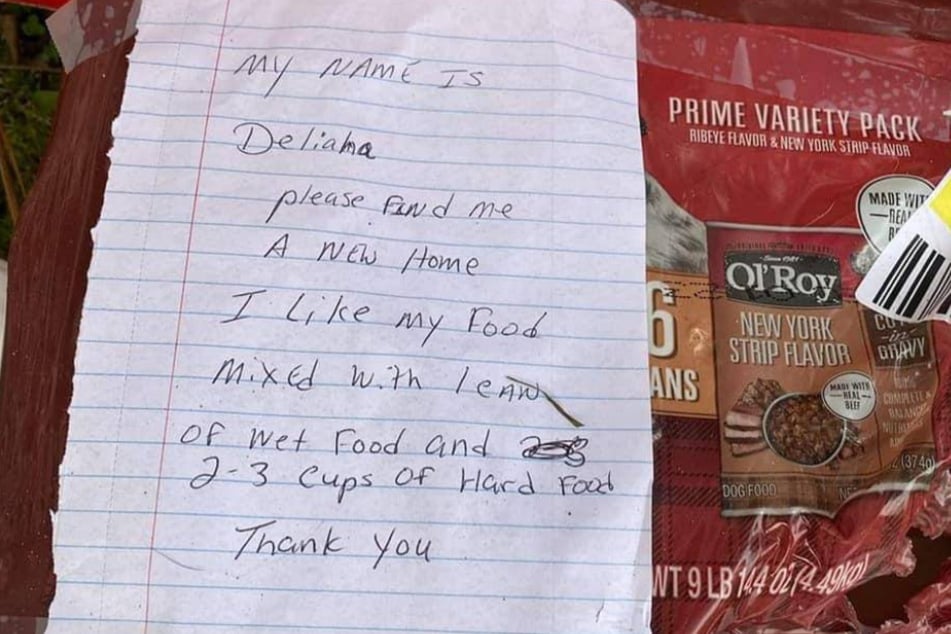 My NAME IS
Deliaha
please Find me
A New Home
I Like my Food
Mixed With 1 cAN
Of Wet Food and
2-3 Cups Of Hard Food
Thank You
PRIME VARIETY PACK
RIBEYE FLAVOR & NEW YORK STRIP FLAVOR
MADE WIT
6
ANS
Ol'Roy
NEW YORK
STRIP FLAVOR
in
GRAVY
MADE WITH
REAL
BEEF
(374g)
DOG FOOD
WT 9 LB 14.4 OZ (4.49KG)